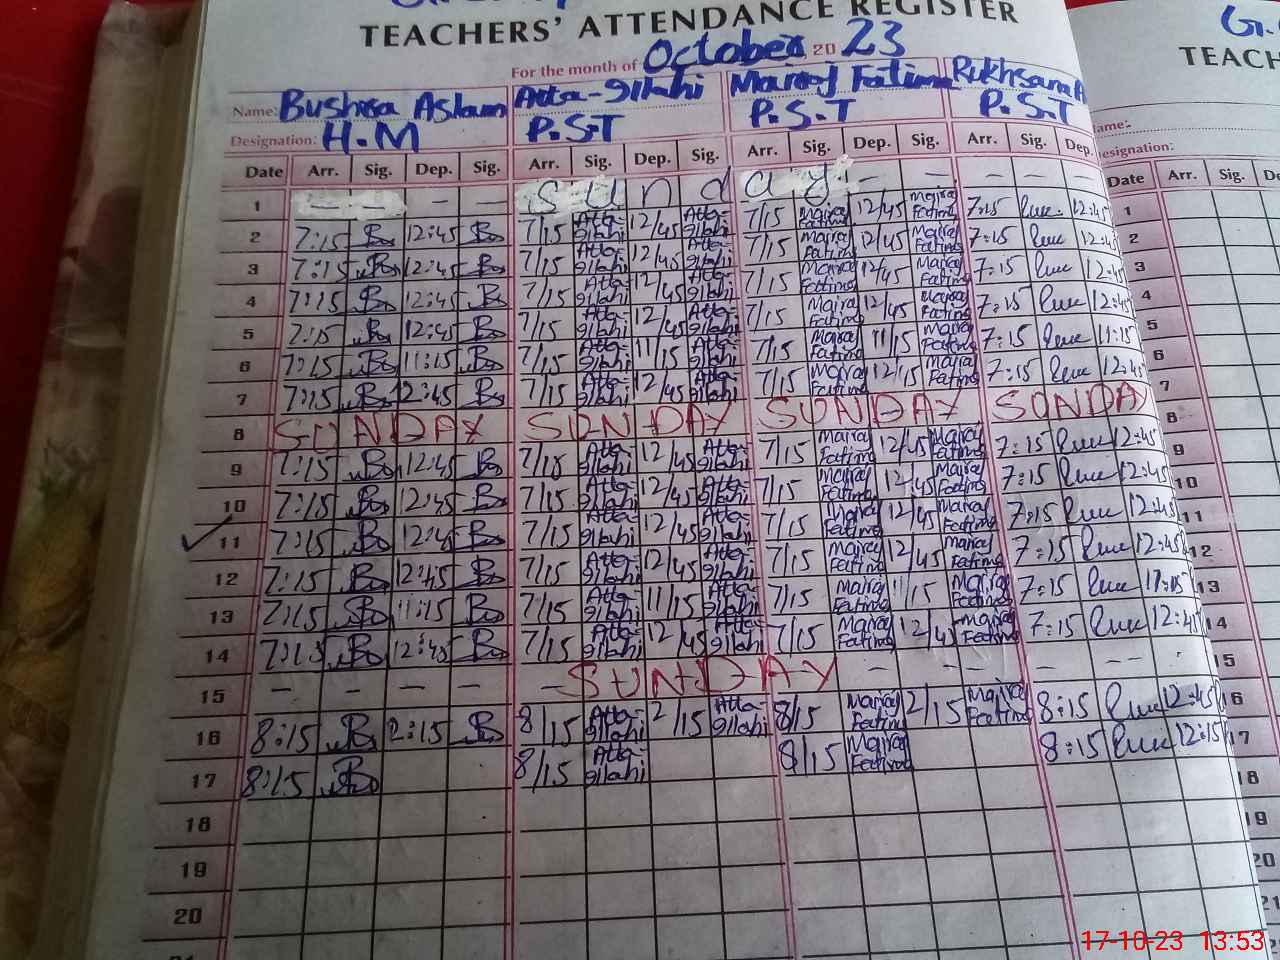 TEACHERS' ATTENDANCE REGISTER
For the month of October 2023
Name: Bushra Aslam Atta-Ellahi Mairaj Fatima Rukhsana
Designation: H.M P.S.T P.S.T P.S.T
Date Arr. Sig. Dep. Sig. Arr. Sig. Dep. Sig. Arr. Sig. Dep. Sig. Arr. Sig. Dep.
1 — — — — Sunday — —
2 7:15 12:45 7/15 Atta-Ellahi 12/45 Atta-Ellahi 7/15 Mairaj Fatima 12/45 Mairaj Fatima 7:15 12:45
3 7:15 12:45 7/15 Atta-Ellahi 12/45 Atta-Ellahi 7/15 Mairaj Fatima 12/45 Mairaj Fatima 7:15 12:45
4 7:15 12:45 7/15 Atta-Ellahi 12/45 Atta-Ellahi 7/15 Mairaj Fatima 12/45 Mairaj Fatima 7:15 12:45
5 7:15 12:45 7/15 Atta-Ellahi 12/45 Atta-Ellahi 7/15 Mairaj Fatima 12/45 Mairaj Fatima 7:15 12:45
6 7:15 11:15 7/15 Atta-Ellahi 11/15 Atta-Ellahi 7/15 Mairaj Fatima 11/15 Mairaj Fatima 7:15 11:15
7 7:15 12:45 7/15 Atta-Ellahi 12/45 Atta-Ellahi 7/15 Mairaj Fatima 12/15 Mairaj Fatima 7:15 12:45
8 SUNDAY SUNDAY SUNDAY SUNDAY
9 7:15 12:45 7/15 Atta-Ellahi 12/45 Atta-Ellahi 7/15 Mairaj Fatima 12/45 Mairaj Fatima 7:15 12:45
10 7:15 12:45 7/15 Atta-Ellahi 12/45 Atta-Ellahi 7/15 Mairaj Fatima 12/45 Mairaj Fatima 7:15 12:45
11 7:15 12:45 7/15 Atta-Ellahi 12/45 Atta-Ellahi 7/15 Mairaj Fatima 12/45 Mairaj Fatima 7:15 12:45
12 7:15 12:45 7/15 Atta-Ellahi 12/45 Atta-Ellahi 7/15 Mairaj Fatima 12/45 Mairaj Fatima 7:15 12:45
13 7:15 11:15 7/15 Atta-Ellahi 11/15 Atta-Ellahi 7/15 Mairaj Fatima 11/15 Mairaj Fatima 7:15
14 7:15 12:45 7/15 Atta-Ellahi 12/45 Atta-Ellahi 7/15 Mairaj Fatima 12/45 Mairaj Fatima 7:15 12:45
15 — — — — — SUNDAY — — — — --
16 8:15 2:15 8/15 Atta-Ellahi 2/15 Atta-Ellahi 8/15 Mairaj Fatima 2/15 Mairaj Fatima 8:15 12:45
17 8:15 8/15 Atta-Ellahi 8/15 Mairaj Fatima 8:15 12:15
18
19
20
21
TEACH
Name:-
Designation:
Date Arr. Sig. De
1
2
3
4
5
6
7
8
9
10
11
12
13
14
15
16
17
18
19
20
21
17-10-23 13:53